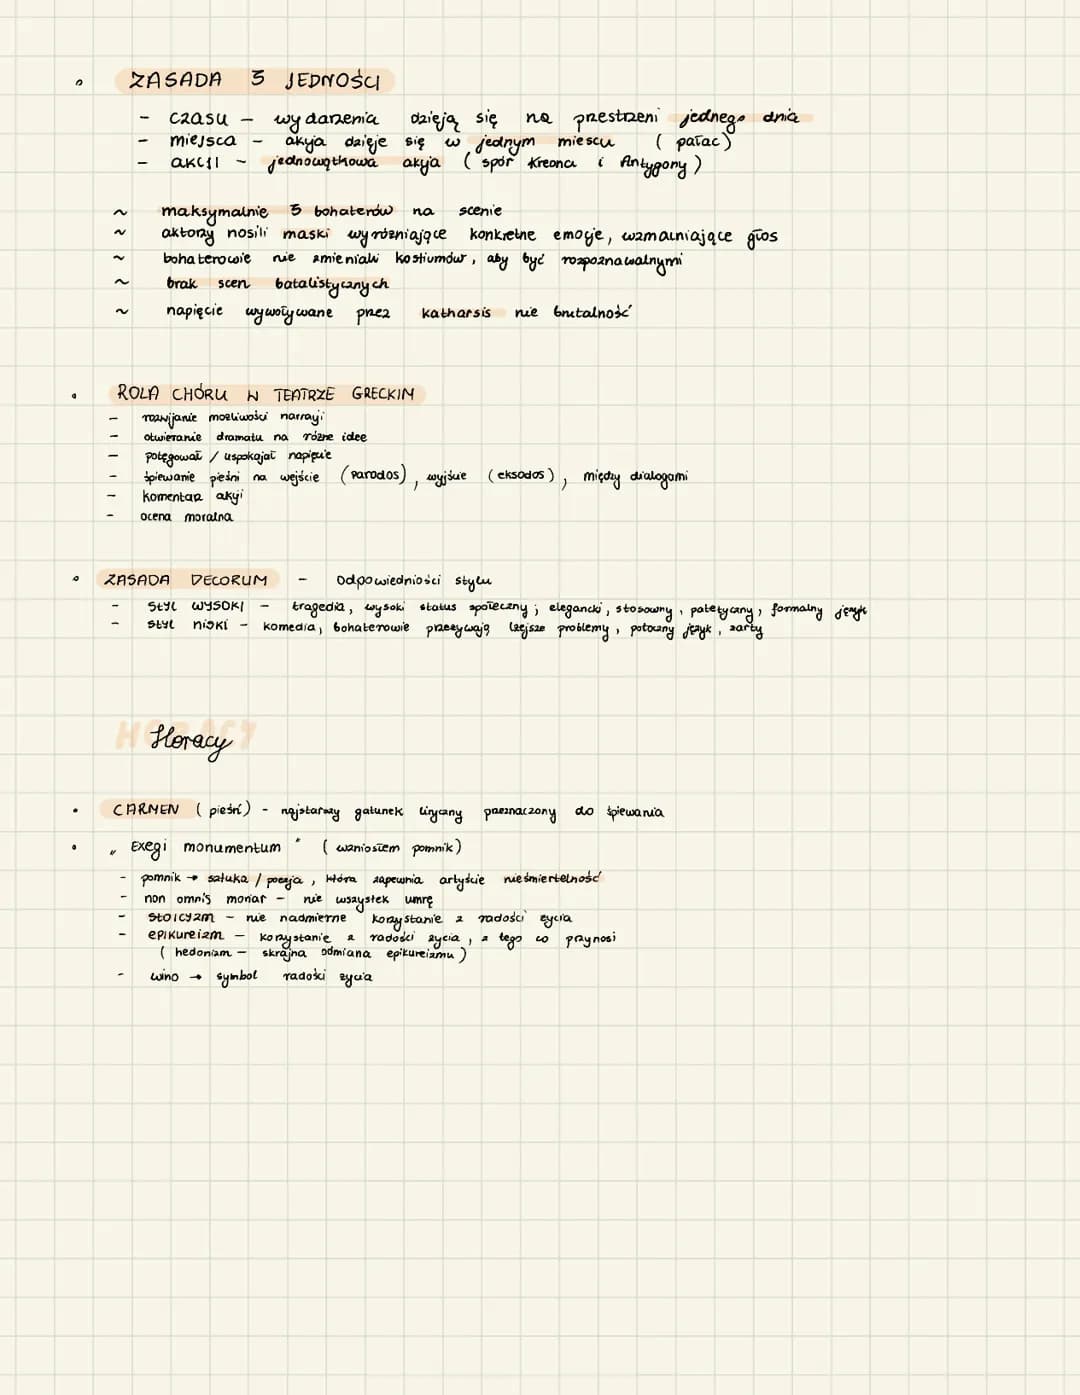 ZASADA 3 JEDNOŚCI
- czasu - wydarzenia dzieją się na przestrzeni jednego dnia
- miejsca - akcja dzieje się w jednym miescu (pałac)
- akcji - jednowątkowa akcja (spór Kreona i Antygony)
~ maksymalnie 3 bohaterów na scenie
~ aktorzy nosili maski wyróżniające konkretne emocje, wzmacniające głos
~ bohaterowie nie zmieniali kostiumów, aby być rozpoznawalnymi
~ brak scen batalistycznych
~ napięcie wywoływane przez katharsis nie brutalność
ROLA CHÓRU W TEATRZE GRECKIM
- rozwijanie możliwości narracji
- otwieranie dramatu na różne idee
- potęgował / uspokajał napięcie
- śpiewanie pieśni na wejście (parodos), wyjście (eksodos), między dialogami
- komentarz akcji
- ocena moralna
ZASADA DECORUM - odpowiedniości stylu
- STYL WYSOKI - tragedia, wysoki status społeczny; elegancki, stosowny, patetyczny, formalny język
- STYL NISKI - komedia, bohaterowie przeżywają lżejsze problemy, potoczny język, żarty
HORACY
Horacy
CARMEN (pieśń) - najstarszy gatunek liryczny przeznaczony do śpiewania
„Exegi monumentum" (wzniosłem pomnik)
- pomnik → sztuka / poezja, która zapewnia artyście nieśmiertelność
- non omnis moriar - nie wszystek umrę
- STOICYZM - nie nadmierne korzystanie z radości życia
- EPIKUREIZM - korzystanie z radości życia, z tego co przynosi
(hedonizm - skrajna odmiana epikureizmu)
- wino → symbol radości życia